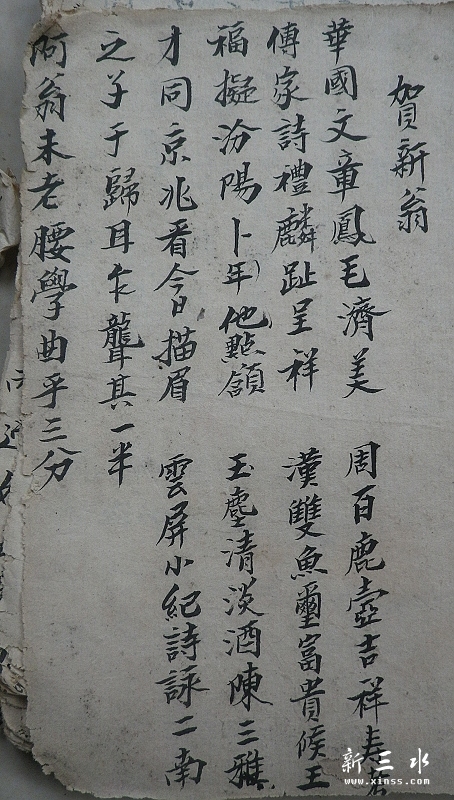 賀新翁
華國文章鳳毛濟美
傳家詩禮麟趾呈祥
福擬汾陽卜年他點頷
才同京兆看今日描眉
之子于歸耳乍聾其一半
阿翁未老腰學曲乎三分
周百鹿壺吉祥壽
漢雙魚璽富貴候王
玉塵清淡酒陳三雅
雲屏小紀詩詠二南
新三水
www.xinss.com